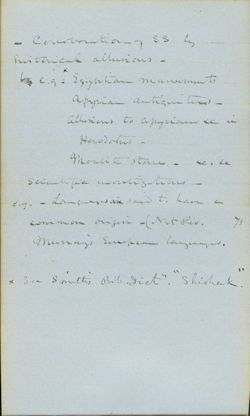 - Corroboration of SS by
historical allusions -
e.g. x Egyptian monuments
Assyrian antiquities -
Allusions to Assyrians &c in
Herodotus -
Moabite stone - &c. &c
Scientific investigations -
e.g. - Languages said to have a
common origin - (
Murray's European languages.
x See Smith's Bib. Dict. "Shishak".